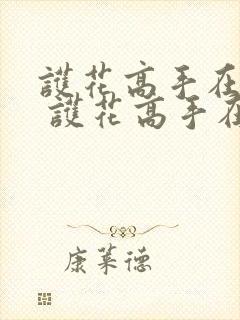 護花高手在
護花高手在
康莱德